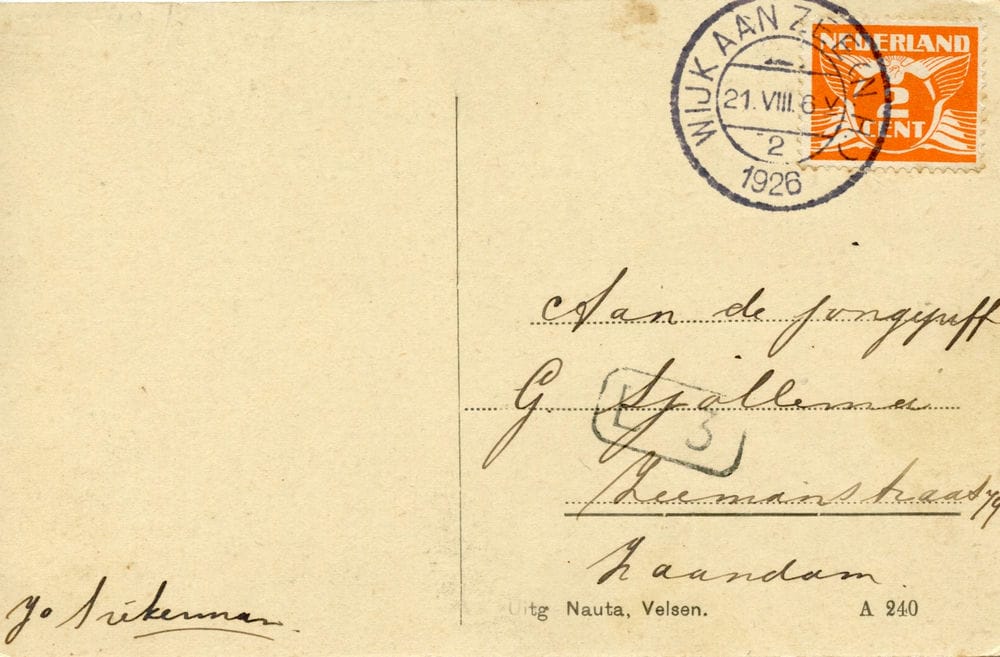 WIJK AAN ZEE (N.H.)
21.VIII.6 V
2
1926
NEDERLAND
2
CENT
Aan de jongejuff
G. Sjollema
L 3
Zeemanstraat
Zaandam.
Jo
Uitg Nauta, Velsen. A 240